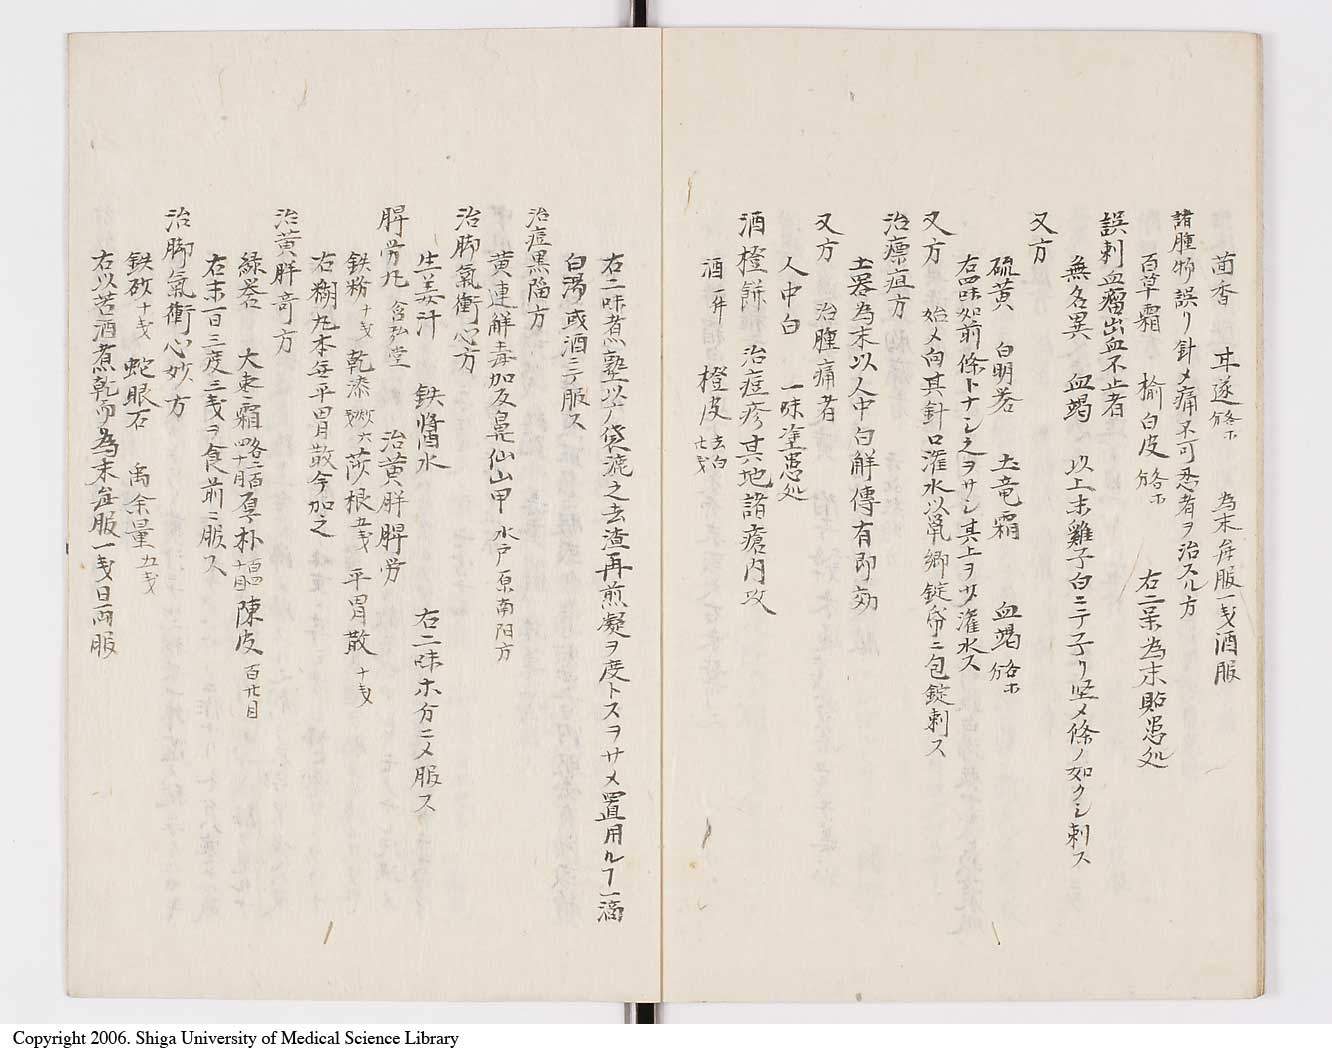 茴香 甘遂 為末毎服一戔酒服
諸腫物誤リ針〆痛不可忍者ヲ治スル方
百草霜 楡白皮 右二味為末貼患処
誤刺血瘤出血不止者
無名異 血竭 以上末雞子白ニテ子リ堅〆條ノ如クシ刺ス
又方
硫黄 白明礬 土竜霜 血竭
右四味如前條トナシ之ヲサシ其上ヲ灌水ス
又方 始〆向其針口灌水以 錠 ニ包錠刺ス
治瘭疽方
土器為末以人中白解傳有即効
又方 治腫痛者
人中白 一味塗患処
酒橙餅 治痘疹其地諸瘡内攻
酒 一升 橙皮 去白 七戔
右二味煮熟以 袋漉之去渣再煎凝ヲ度トスヲサメ置用ルヿ一滴
白湯或酒ニテ服ス
治痘黒陥方
黄連解毒加反鼻仙山甲 水戸原南阳方
治脚氣衝心方
生姜汁 鉄醤水 右二味ホ分ニ〆服ス
脾労丸 含弘堂 治黄胖脾労
鉄粉 十戔 乾漆 六 莎根 五戔 平胃散 十戔
右糊丸本毎平胃散今加之
治黄胖竒方
緑礬 大枣霜 厚朴 陳皮 百廿目
右末一日三度三戔ヲ食前ニ服ス
治脚氣衝心妙方
鉄砂 十戔 蛇眼石 禹余量 五戔
右以苦酒煮乾而為末毎服一戔日両服
Copyright 2006. Shiga University of Medical Science Library